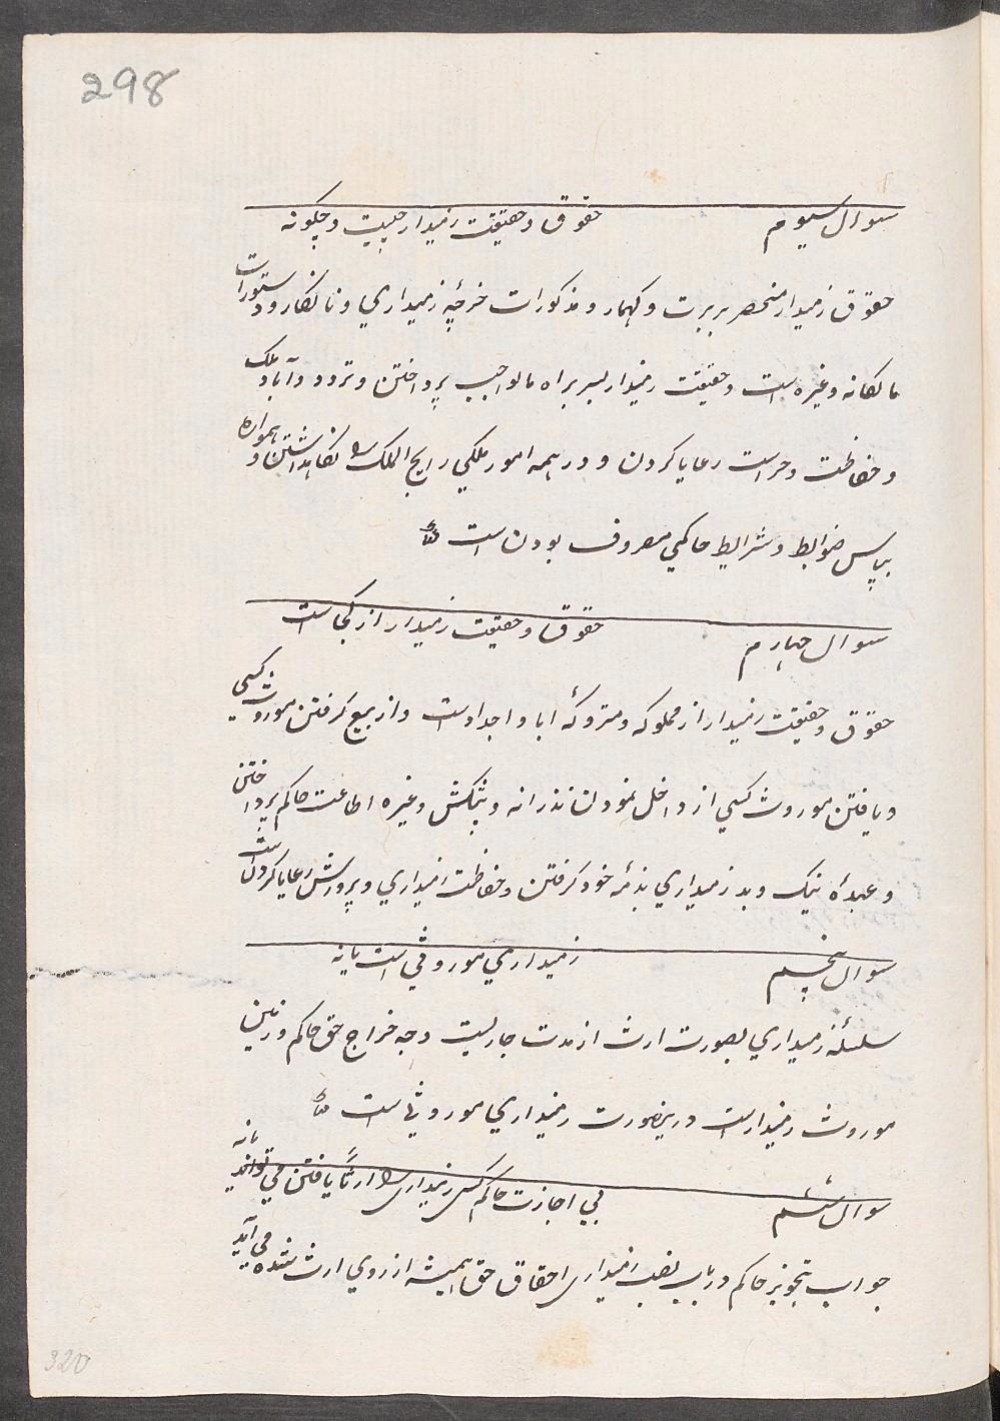 298
سوال سیوم حقوق و حقیقت زمیندار چیست و چکونه
حقوق زمیندار منحصر بر برت و کهمار و مذکورات خرچۀ زمینداري و نانکار و دستورات
مالکانه وغیره است و حقیقت زمیندار بسربراه مالواجب پرداختن و تردد و آباد ملک
و حفاظت و حراست رعایا کردن و در همه امور ملکي رایج الملک را نکاهداشتن و همواره
بپاس ضوابط و شرایط حاکمي مصروف بودن است
سوال چهارم حقوق و حقیقت زمیندار از کجا است
حقوق و حقیقت زمیندار از مملوکه و متروکۀ ابا و اجداد است و از بیع کرفتن موروث کسي
و یافتن موروث کسي از داخل نمودن نذرانه و پیشکش وغیره اطاعت حاکم پرداختن
و عهدۀ نیک و بد زمینداري بذمۀ خود کرفتن و حفاظت زمینداري و پرورش رعایا کردن است
سوال پنجم زمینداري موروثي است یا نه
سلسلۀ زمینداري بصورت ارث از مدت جاریست وجه خراج حق حاکم و زمین
موروث زمیندار است درینصورت زمینداري موروثي است
سوال ششم بي اجازت حاکم کسي زمینداري را ارثاً یافتن مي تواند یا نه
جواب تجویز حاکم در باب نصب زمینداري احقاق حق همیشه از روي ارث شده مي آید
320